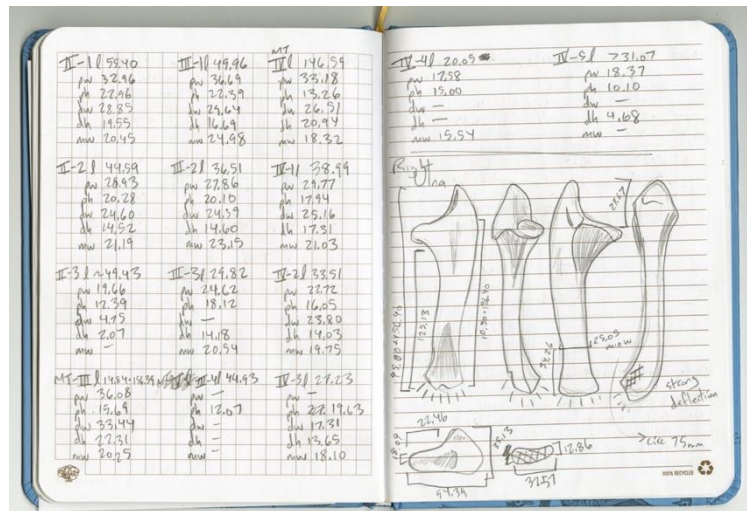 II-1 l 55.40
pw 32.96
ph 27.96
dw 28.85
dh 19.55
mw 20.45
II-2 l 44.59
pw 28.93
ph 20.28
dw 24.60
dh 14.52
mw 21.19
II-3 l ~49.43
pw 19.66
ph 17.39
dw 4.75
dh 2.07
mw –
MT-III l
pw 36.08
ph 15.69
dw 33.44
dh 22.31
mw 20.25
III-1 l 49.96
pw 36.69
ph 22.39
dw 29.64
dh 16.69
mw 24.98
III-2 l 36.51
pw 27.86
ph 20.10
dw 24.59
dh 14.60
mw 23.15
III-3 l 29.82
pw 24.62
ph 18.12
dw –
dh 14.18
mw 20.54
III-4 l 44.93
pw –
ph 12.07
dw –
dh –
mw –
MT
IV l 146.59
pw 33.18
ph 13.26
dw 26.51
dh 20.94
mw 18.32
IV-1 l 38.99
pw 29.77
ph 17.94
dw 25.16
dh 17.31
mw 21.03
IV-2 l 33.51
pw 27.72
ph 16.05
dw 23.80
dh 14.03
mw 19.75
IV-3 l 27.23
pw –
ph 19.63
dw 17.31
dh 13.65
mw 18.10
IV-4 l 20.05
pw 17.58
ph 15.00
dw –
dh –
mw 15.54
IV-5 l >31.07
pw 18.37
ph 10.10
dw –
dh 4.68
mw –
Right
Ulna
125.13
25.03
min w
strong
deflection
22.46
35.13
54.39
12.86
32.57
>like 75mm